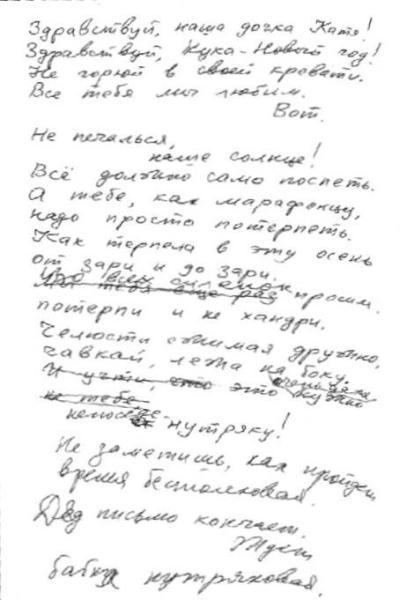 Здравствуй, наша дочка Катя!
Здравствуй, Кука-Новый год!
Не горюй в своей кровати.
Все тебя мы любим.
Вот.
Не печалься,
наше солнце!
Всё должно само поспеть.
А тебе, как марафонцу,
надо просто потерпеть.
Как терпела в эту осень
от зари и до зари.
просим.
потерпи и не хандри.
Челюсти сжимая дружно,
чавкай, лежа на боку.
И учти, это нужно
не тебе
нутряку!
Не заметишь, как пройдет
время бестолковая.
Дед письмо кончает.
Ждет
бабка нутряковая.